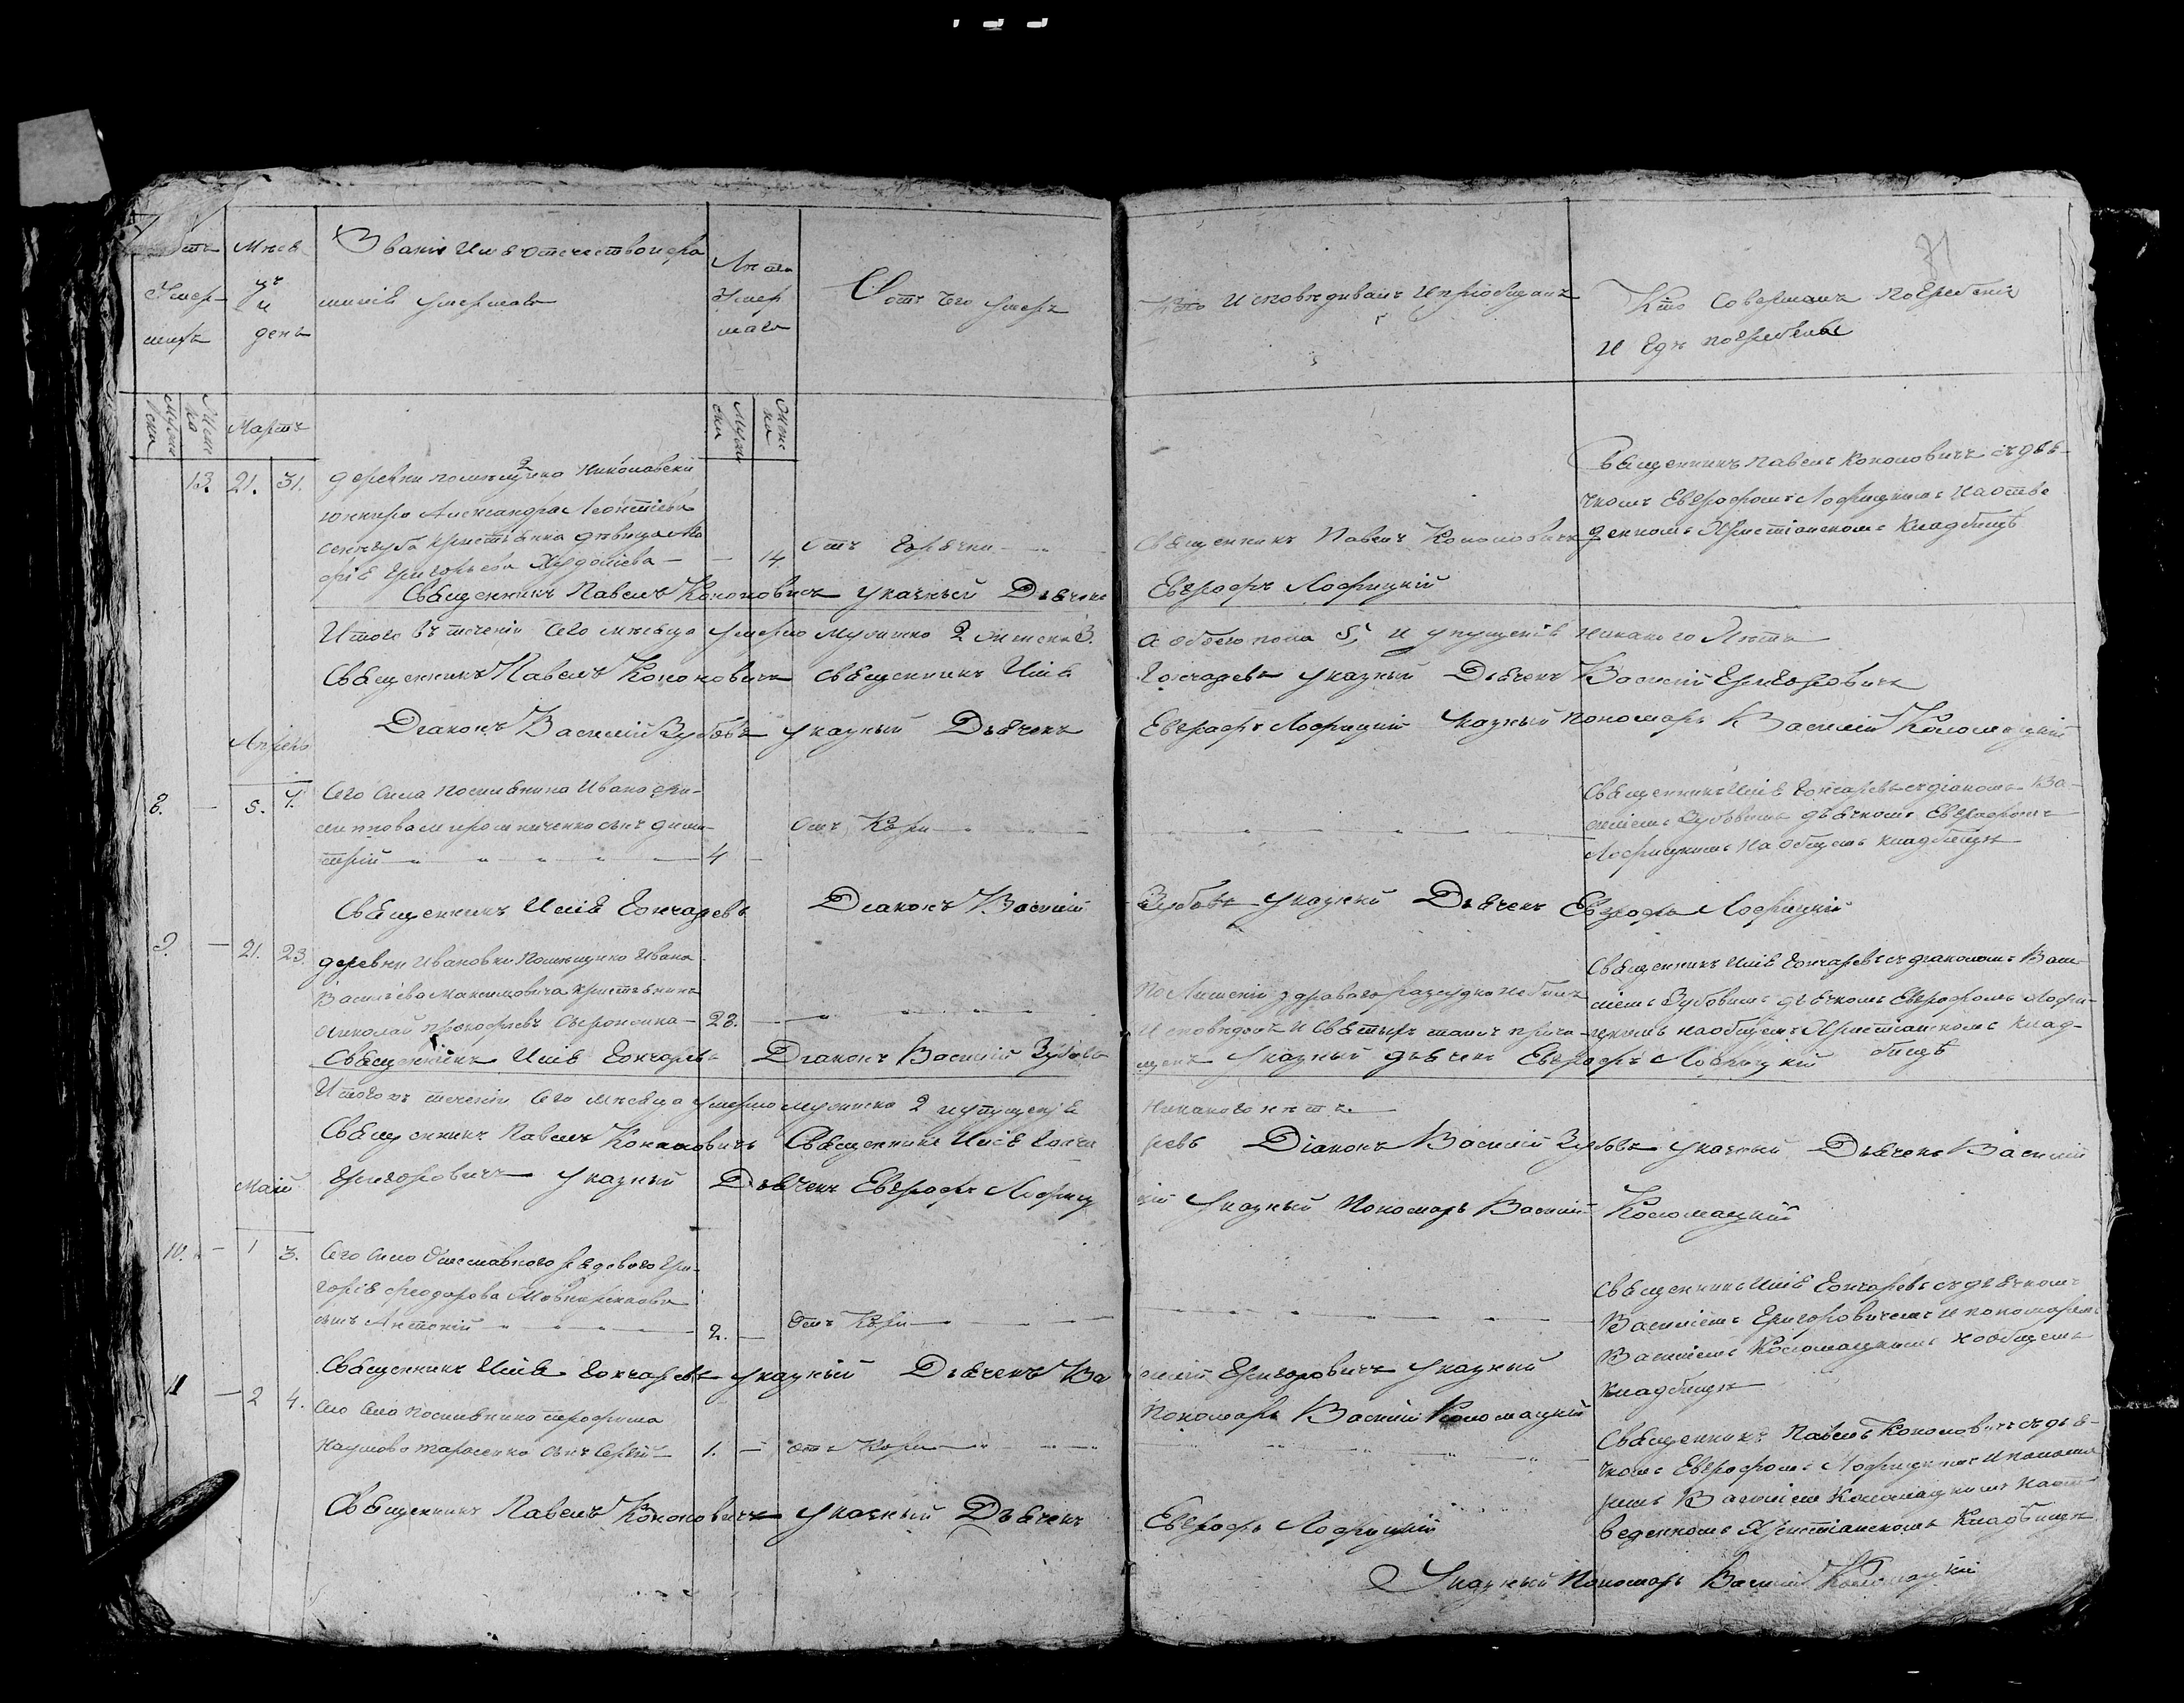 31
Умер
шихъ
Мѣся
цъ
и
день
Званіе Имя отечество и фа
миліѣ умершаго
Лѣта
Умер
шаго
Отъ чего умеръ
Кто исповѣдывалъ и пріобщалъ
Кто совершалъ погребеніе
и гдѣ погребены
Мартъ
13. 21. 31.
деревни помѣщика Николаевки
юнкера Александра Леонтіева
крестьянка дѣвица Ма
ріѣ Григорьева — — 14
Отъ Горячки
Священникъ Павелъ Кононовичъ
Священникъ Павелъ Кононовичъ съ дья-
чкомъ Евграфомъ Лофицкимъ на отве
денномъ Христіанскомъ Кладбищѣ
Священникъ Павелъ Кононовичъ указный Дьячекъ Евграфъ Лофицкій
Итого въ теченіи сего мѣсяца умерло мужска 2 женска 3. а обоего пола 5, и упущеніѣ никакого Нѣтъ
Священникъ Павелъ Кононовичъ священникъ Иліѣ Гончаревъ указный Дьячекъ Василій Григоровичъ
Діаконъ Василій Зубовъ указный Дьячекъ Евграфъ Лофицкій Указный пономарь Василій Коломацкій
Апрель
8. — 5. 7.
Сего Села поселянина Ивана Фи-
липпова сынъ Дими-
трій — 4 —
Отъ Кори
Священникъ Иліѣ Гончаревъ съ діакономъ Ва-
силіемъ Зубовымъ дьячкомъ Евграфомъ
Лофицкимъ на общемъ кладбищѣ
Священникъ Иліѣ Гончаревъ Діаконъ Василій Зубовъ указный Дьячекъ Евграфъ Лофицкій
9. — 21. 23.
деревни Ивановки помѣщика Ивана
Васильева Максимовича крестьянинъ
Николай Прокофіевъ — 28. —
По Лишеніи здраваго разсудка не былъ
исповѣданъ и Святыхъ таинъ прича-
щенъ
Священникъ Иліѣ Гончаревъ съ діакономъ Васи-
ліемъ Зубовымъ дьячкомъ Евграфомъ Лофи-
цкимъ на общемъ Христіанскомъ клад-
бищѣ
Священникъ Иліѣ Гончаревъ Діаконъ Василій Зубовъ Указный дьячекъ Евграфъ Лофицкій
Итого въ теченіи Сего мѣсяца умерло мужска 2 и упущеніѣ никакого нѣтъ
Священникъ Павелъ Кононовичъ Священникъ Иліѣ Гонча ревъ Діаконъ Василій Зубовъ указный Дьячекъ Василій
Григоровичъ указный Дьячекъ Евграфъ Лофиц кій Указный Пономарь Василій Коломацкій
Май
10. — 1 3.
Сего Села Отставного рядового Гри-
горіѣ Феодорова
сынъ Антоній — 2. —
Отъ Кори
Священникъ Иліѣ Гончаревъ съ дьячкомъ
Василіемъ Григоровичемъ и пономаремъ
Василіемъ Коломацкимъ на общемъ
Кладбищѣ
Священникъ Иліѣ Гончаревъ указный Дьячекъ Ва силій Григоровичъ указный
Пономарь Василій Коломацкій
11 — 2 4.
Сего Села поселянина Трофима
Наумова Тарасенка сынъ Сергѣй — 1. —
отъ Кори
Священникъ Павелъ Кононовичъ съ дья-
чкомъ Евграфомъ Лофицкимъ и понома
ремъ Василіемъ Коломацкимъ на от
веденномъ Христіанскомъ Кладбищѣ
Священникъ Павелъ Кононовичъ указный Дьячекъ Евграфъ Лофицкій
Указный Пономарь Василій Коломацкій